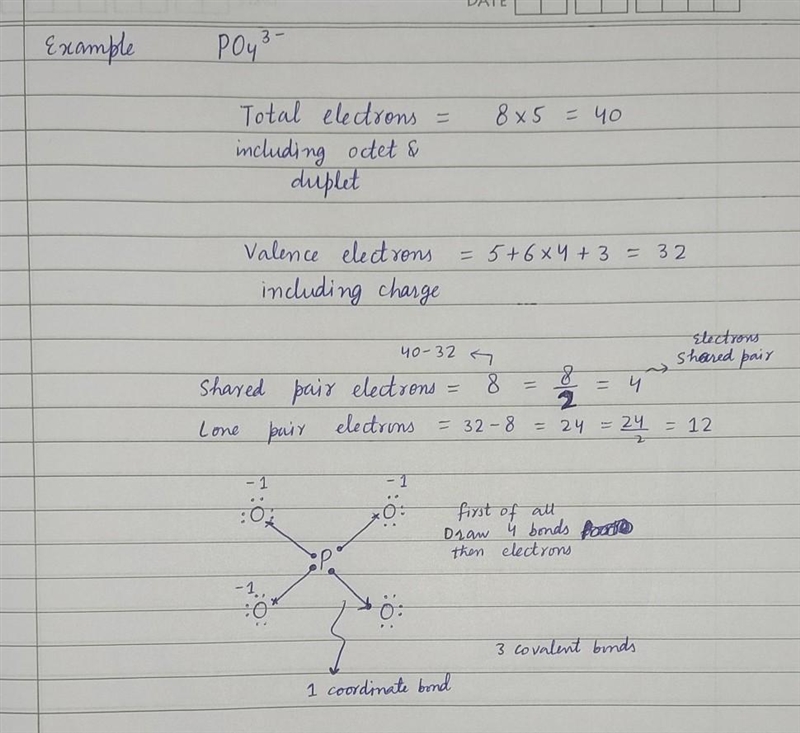 DATE
Example PO4 3-
Total electrons = 8 × 5 = 40
including octet &
duplet
Valence electrons = 5 + 6 × 4 + 3 = 32
including charge
40 - 32
Electrons
Shared pair
Shared pair electrons = 8 = 8/2 = 4
Lone pair electrons = 32 - 8 = 24 = 24/2 = 12
-1 -1
:O: O:
first of all
Draw 4 bonds
then electrons
P
-1
:O: :O:
3 covalent bonds
1 coordinate bond